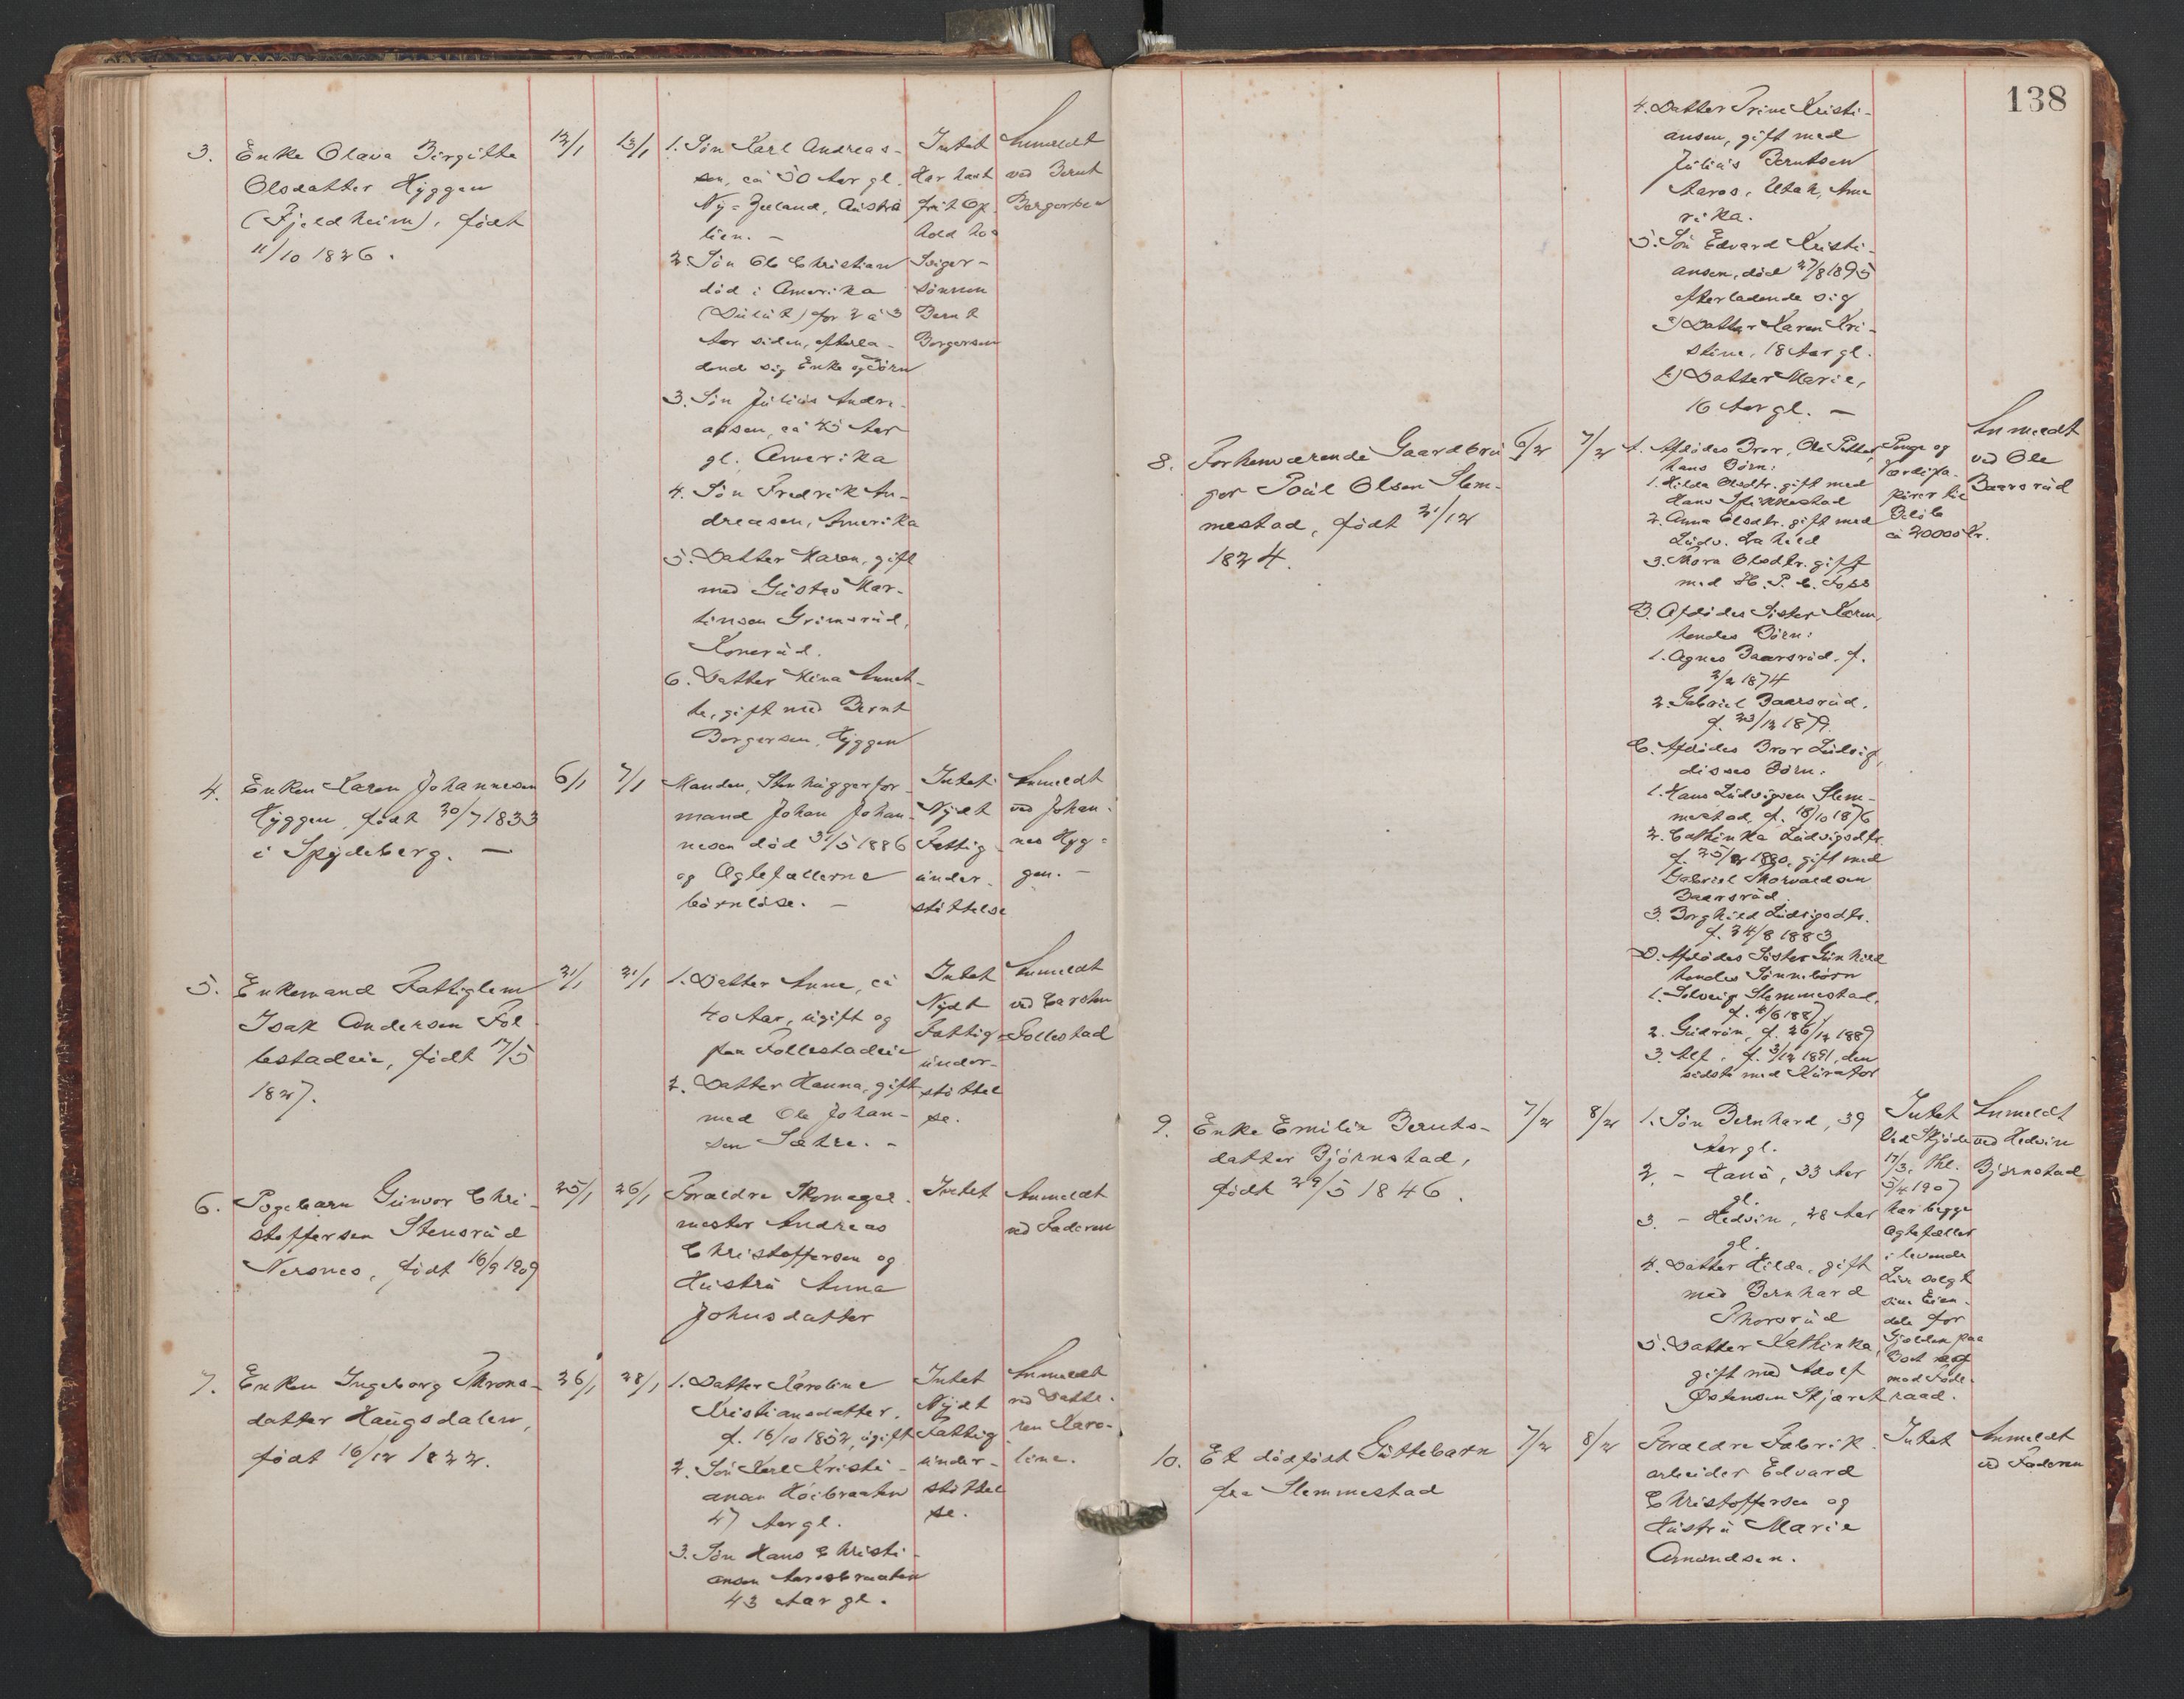 3.
Enke Olava Birgitte
Olsdatter Hyggen
(Fjeldheim), født
11/10 1826.
12/1
13/1
1. Søn Karl Andreas-
sen, ca 50 Aar gl.
Ny-Zeeland, Austra
lien. -
2. Søn Ole Christian
død i Amerika
(Dulut) for 2 à 3
Aar siden, efterla-
dende sig Enke og Børn
3. Søn Julius Andre-
assen, ca 45 Aar
gl. Amerika
4. Søn Fredrik An-
dreasen, Amerika
5. Datter Karen, gift
med Gustav Mar-
tinsen Grimsrud,
6. Datter Annet-
te, gift med Bernt
Borgersen, Hyggen
Intet
Har havt
frit Op-
hold hos
Sviger-
sønnen
Bernt
Borgersen
Anmeldt
ved Bernt
Borgersen
4.
Enken Karen Johannesen
Hyggen, født 30/7 1833
i Spydeberg. -
6/1
7/1
Manden, Stenhuggerfor-
mand Johan Johan-
nesen død 31/5 1886
og Ægtefællerne
barnløse. -
Intet
Nydt
Fattig
under-
støttelse
Anmeldt
ved Johan-
nes Hyg-
gen. -
5.
Enkemand Fattiglem
Isak Andersen Fol
lestadeie, født 17/5
1827.
21/1
21/1
1. Datter Anne, ca
40 Aar, ugift og
paa Follestadeie
2. Datter Hanna, gift
med Ole Johan-
sen Sætre. -
Intet
Nydt
Fattig-
under-
støttel
se.
Anmeldt
ved Carsten
Follestad
6.
Pogebarn Gunvor Chri-
stoffersen Stensrud
Nersnes, født 16/9 1909
25/1
26/1
Foreldre Skomager-
mester Andreas
Christoffersen og
Hustru Anna
Johnsdatter
Intet
Anmeldt
ved Faderen
7.
Enken Ingeborg Throns-
datter Haugsdalen,
født 16/12 1822.
26/1
28/1
1. Datter Karoline
Kristiansdatter,
f. 16/10 1852, ugift
2. Søn Karl Kristi-
ansen Høibraaten
47 Aar gl.
3. Søn Hans Christi-
ansen Aarosbraaten
43 Aar gl.
Intet
Nydt
Fattig
under-
støttel
se.
Anmeldt
ved Datte-
ren Karo-
line.
138
4. Datter Trine Kristi-
ansen, gift med
Julius Berntsen
Aaros, Utah, Ame
rika.
5. Søn Edvard Kristi-
ansen, død 27/8 1895
efterladende sig
a) Datter Karen Kri-
stine, 18 Aar gl.
b) Datter Marie,
16 Aar gl. -
8.
Forhenværende Gaardbru
ger Poul Olsen Slem-
mestad, født 21/12
1824.
6/2
7/2
A. Afdødes Bror, Ole Petter,
hans Børn:
1. Hilda Olsdtr. gift med
Hans
2. Anna Olsdtr. gift med
Ludv.
3. Thora Olsdtr. gift
med H. P. C. Foss
B. Afdødes Søster Karen,
hendes Børn:
1. Agnes Baarsrud, f.
2/2 1874
2. Gabriel Baarsrud,
f. 23/12 1879.
C. Afdødes Bror Ludvig,
disses Børn:
1. Hans Ludvigsen Slem-
mestad, f. 18/10 1876
2. Cathinka Ludvigsdtr.
f. 25/2 1880, gift med
Gabriel Thorvaldsen
Baarsrud
3. Borghild Ludvigsdtr.
f. 24/8 1883
D. Afdødes Søster Gunhild
hendes Sønnebørn
1. Solveig Slemmestad,
f. 4/6 1887,
2. Gudrun, f. 26/12 1889
3. Alf, f. 3/12 1891, den
sidste med Kurator
Penge og
Værdipa-
pirer til
Beløb
ca 20000 kr.
Anmeldt
ved Ole
Baarsrud
9.
Enke Emilie Bernts-
datter Bjørnstad,
født 29/5 1846.
7/2
8/2
1. Søn Bernhard, 39
Aar gl.
2. - Hans, 33 Aar
gl.
3. - Hedvin, 28 Aar
gl.
4. Datter Hilda, gift
med Bernhard
Thorsrud
5. Datter Kathinka,
gift med Adolf
Østensen Skjæret
Intet
Ved Skjøde
17/3, thl.
5/4 1907
har begge
Ægtefæller
i levende
Live solgt
sine Eien-
dele for
Gjælden paa
Boet og
mod Føde-
raad.
Anmeldt
ved Hedvin
Bjørnstad
10.
Et dødfødt Guttebarn
fra Slemmestad
7/2
8/2
Foreldre Fabrik-
arbeider Edvard
Christoffersen og
Hustru Marie
Amundsen.
Intet
Anmeldt
ved Faderen